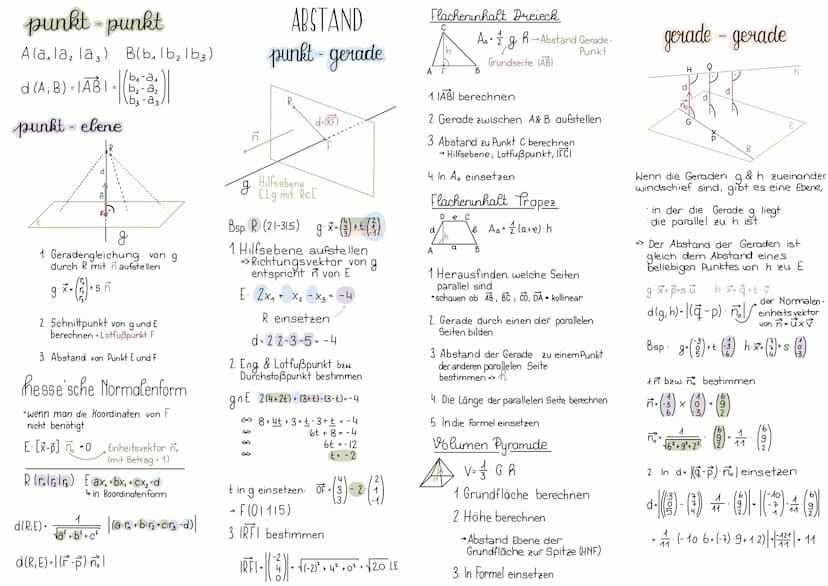 ABSTAND
punkt - punkt
A(a₁|a₂|a₃) B(b₁|b₂|b₃)
d(A;B) = |AB| = |(b₁-a₁ b₂-a₂ b₃-a₃)|
punkt - ebene
R
d
n
F
E
g
1 Geradengleichung von g
durch R mit n aufstellen
g: x = (r₁ r₂ r₃) + s n
2. Schnittpunkt von g und E
berechnen → Lotfußpunkt F
3 Abstand von Punkt E und F
hesse'sche Normalenform
*wenn man die Koordinaten von F
nicht benötigt
E: [x-p] n₀ = 0 Einheitsvektor n₀
(mit Betrag = 1)
R(r₁|r₂|r₃) E ax₁+bx₂+cx₃=d
↳ in Koordinatenform
d(R;E) = 1/√(a²+b²+c²) |(a r₁+b r₂+c r₃-d)|
d(R;E) = |(r-p) n₀|
punkt - gerade
R
d=|RF|
n
F
g
Hilfsebene
E⊥g mit R∈E
Bsp. R (2|-3|5) g: x = (4 3 3) + t (2 1 -1)
1 Hilfsebene aufstellen
⇒ Richtungsvektor von g
entspricht n von E
E: 2x₁ + x₂ - x₃ = -4
R einsetzen
d = 2·2-3-5 = -4
2. E∩g & Lotfußpunkt bzw.
Durchstoßpunkt bestimmen
g∩E 2(4+2t)+(3+t)-(3-t)=-4
⇔ 8+4t+3+t-3+t = -4
⇔ 6t+8 = -4
⇔ 6t = -12
⇔ t = -2
t in g einsetzen: OF = (4 3 3) - 2 (2 1 -1)
→ F(0|1|5)
3. |RF| bestimmen
|RF| = |(-2 4 0)| = √((-2)²+4²+0²) = √20 LE
Flächeninhalt Dreieck
C
h
A F B
A_Δ = 1/2 g h → Abstand Gerade-
Punkt
Grundseite |AB|
1. |AB| berechnen
2 Gerade zwischen A & B aufstellen
3 Abstand zu Punkt C berechnen
→ Hilfsebene, Lotfußpunkt, |FC|
4. In A_Δ einsetzen
Flächeninhalt Trapez
D c C
d h
A a B
1 Herausfinden, welche Seiten
parallel sind
*schauen ob AB, BC, CD, DA • kollinear
2. Gerade durch einen der parallelen
Seiten bilden
3 Abstand der Gerade zu einem Punkt
der anderen parallelen Seite
bestimmen ⇒ h
4. Die Länge der parallelen Seite berechnen
5. In die Formel einsetzen
Volumen Pyramide
V = 1/3 G h
1. Grundfläche berechnen
2. Höhe berechnen
→ Abstand Ebene der
Grundfläche zur Spitze (HNF)
3. In Formel einsetzen
gerade - gerade
H Q h
d d d
n₀
G
P
g
E
Wenn die Geraden g & h zueinander
windschief sind, gibt es eine Ebene,
· in der die Gerade g liegt
· die parallel zu h ist
⇒ Der Abstand der Geraden ist
gleich dem Abstand eines
beliebigen Punktes von h zu E
g: x = p + s u h: x = q + t v
d(g;h) = |(q-p) · n₀| der Normalen-
einheitsvektor
von n = u x v
1. n bzw. n₀ bestimmen
n = (1 -3 6) x (1 0 3) = (6 9 2)
n₀ = 1/√(6²+9²+2²) · (6 9 2) = 1/11 · (6 9 2)
2 In d = |(q-p) · n₀| einsetzen
= 1/11 · (-10·6+(-7)·9+1·2) = |-121/11| = 11